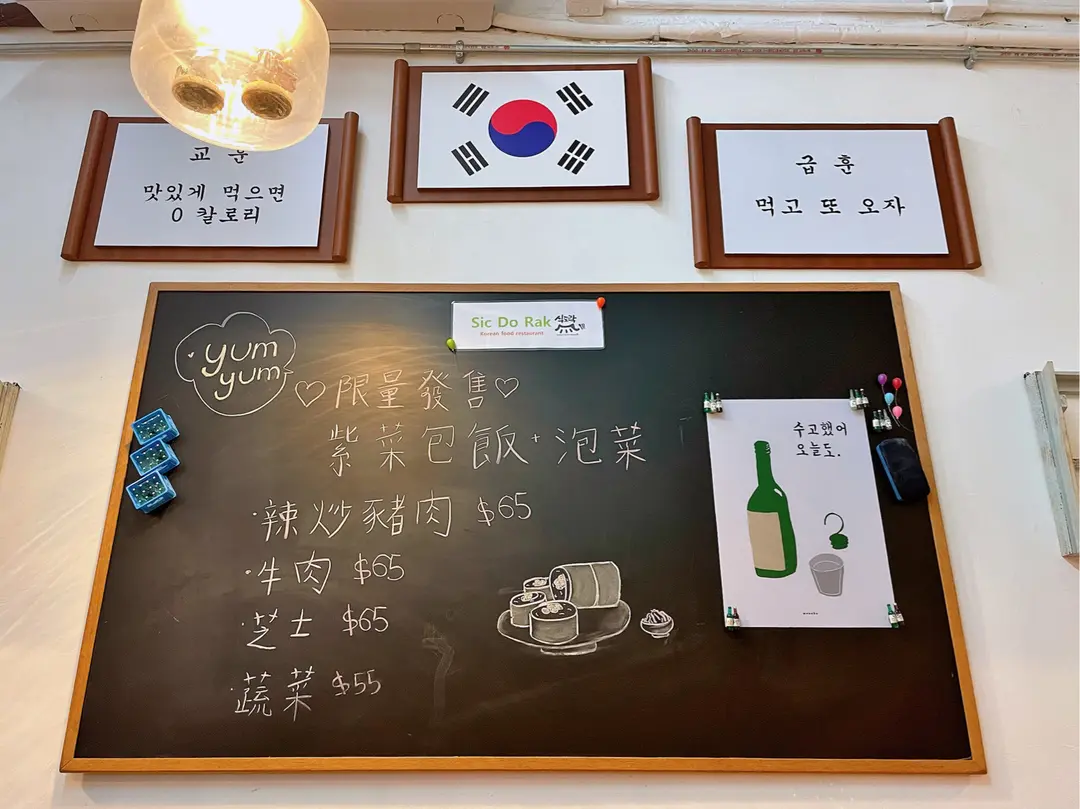 교 훈
맛있게 먹으면
0 칼로리
급 훈
먹고 또 오자
Sic Do Rak
Korean food restaurant
식도락
yum
yum
♡限量發售♡
紫菜包飯+泡菜
·辣炒豬肉 $65
·牛肉 $65
·芝士 $65
·蔬菜 $55
수고했어
오늘도.